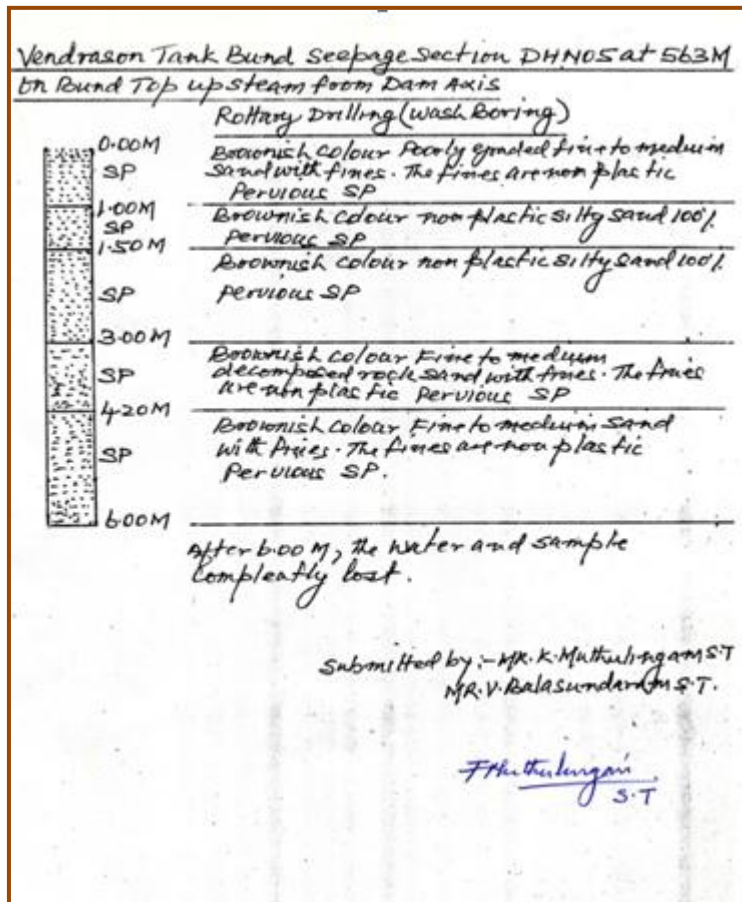 Vendrason Tank Bund Seepage Section DHN05 at 563M
on Bund Top upsteam from Dam Axis
Rottary Drilling (wash Boring)
0.00M
SP
Brownish Colour Poorly graded fine to medium
Sand with fines. The fines are non plastic
Pervious SP
1.00M
SP
Brownish Colour non plastic silty sand 100%
Pervious SP
1.50M
Brownish Colour non plastic silty sand 100%
SP
Pervious SP
3.00M
Brownish Colour Fine to medium
SP
decomposed rock sand with fines. The fines
are non plastic Pervious SP
4.20M
Brownish Colour Fine to medium sand
SP
with fines. The fines are non plastic
Pervious SP.
6.00M
After 6.00 M, the water and sample
Compleatly lost.
Submitted by:- MR. K. Muthulingam S.T
MR. V. Balasundaram S.T.
S.T